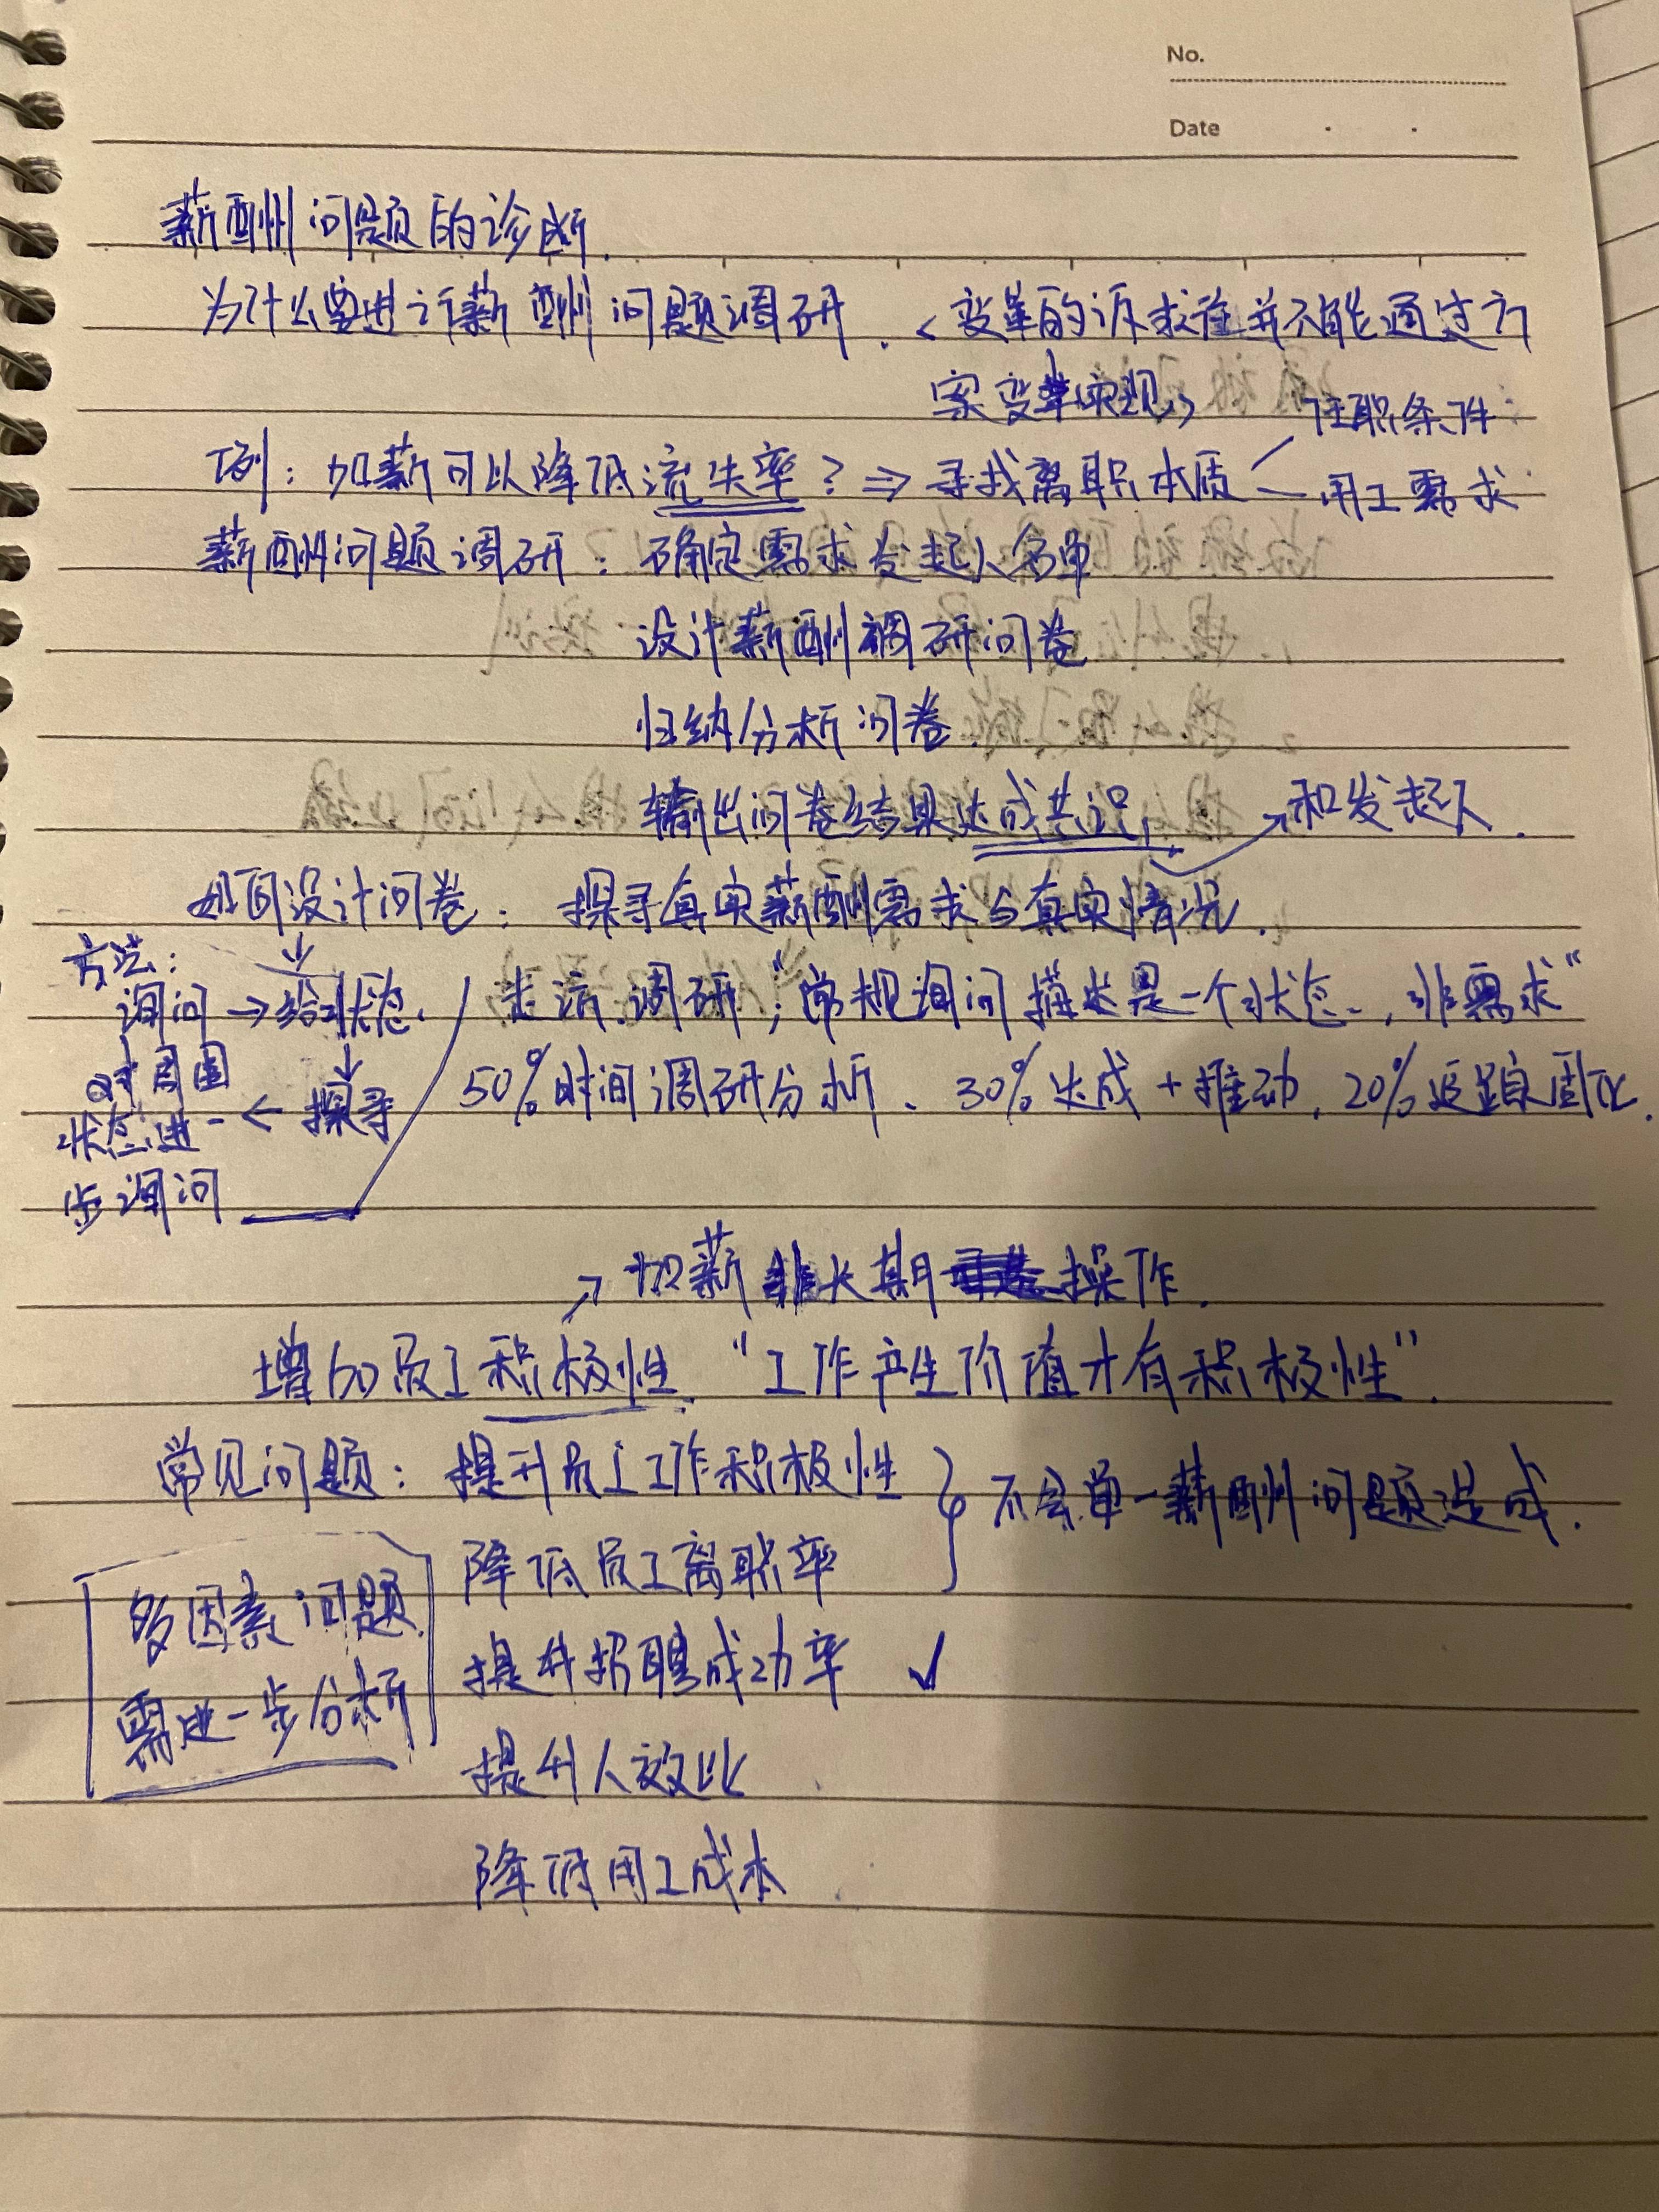 No.
Date
薪酬问题的诊断.
为什么要进行薪酬问题调研. <变革的诉求往并不能通过方
案变革实现>
任职条件
例: 加薪可以降低流失率? ⇒ 寻找离职本质
用工需求
薪酬问题调研: 确定需求发起人名单
设计薪酬调研问卷
归纳分析问卷.
输出问卷结果达成共识, → 和发起人.
如何设计问卷: 探寻真实薪酬需求与真实情况.
方法:
询问 → 给状态. 走访.调研; "常规询问描述是一个状态, 非需求"
对周围
状态进一 ← 探寻
步询问
50%时间调研分析、30%达成+推动, 20%追踪固化.
↗ 加薪非长期操作.
增加员工积极性. "工作产生价值才有积极性".
常见问题: 提升员工工作积极性
不会单一薪酬问题造成.
降低员工离职率
多因素问题.
需进一步分析
提升招聘成功率 ✓
提升人效比
降低用工成本